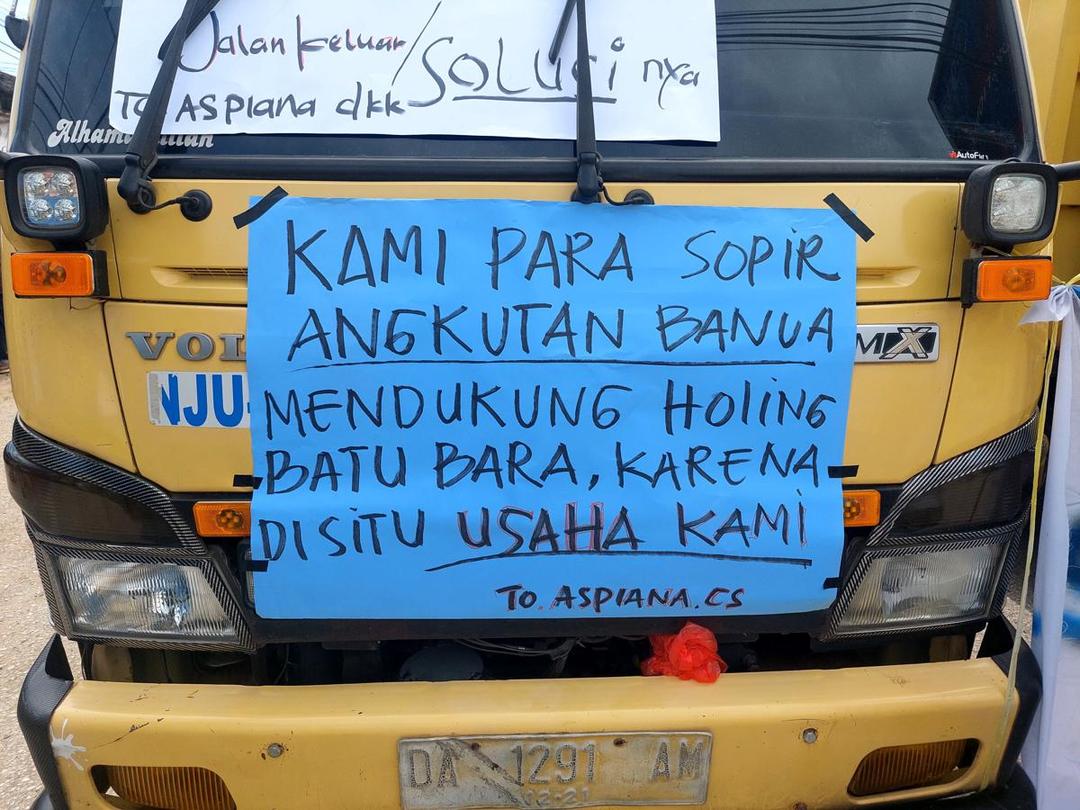 Jalan keluar/SOLUSi nya
To ASPIANA dkk
Alhamdulillah
AutoFilm
KAMI PARA SOPIR
ANGKUTAN BANUA
VOL
MX
NJU
MENDUKUNG HOlING
BATU BARA, KARENA
DISITU USAHA KAMI
TO. ASPIANA. CS
DA 1291 AM
02·21